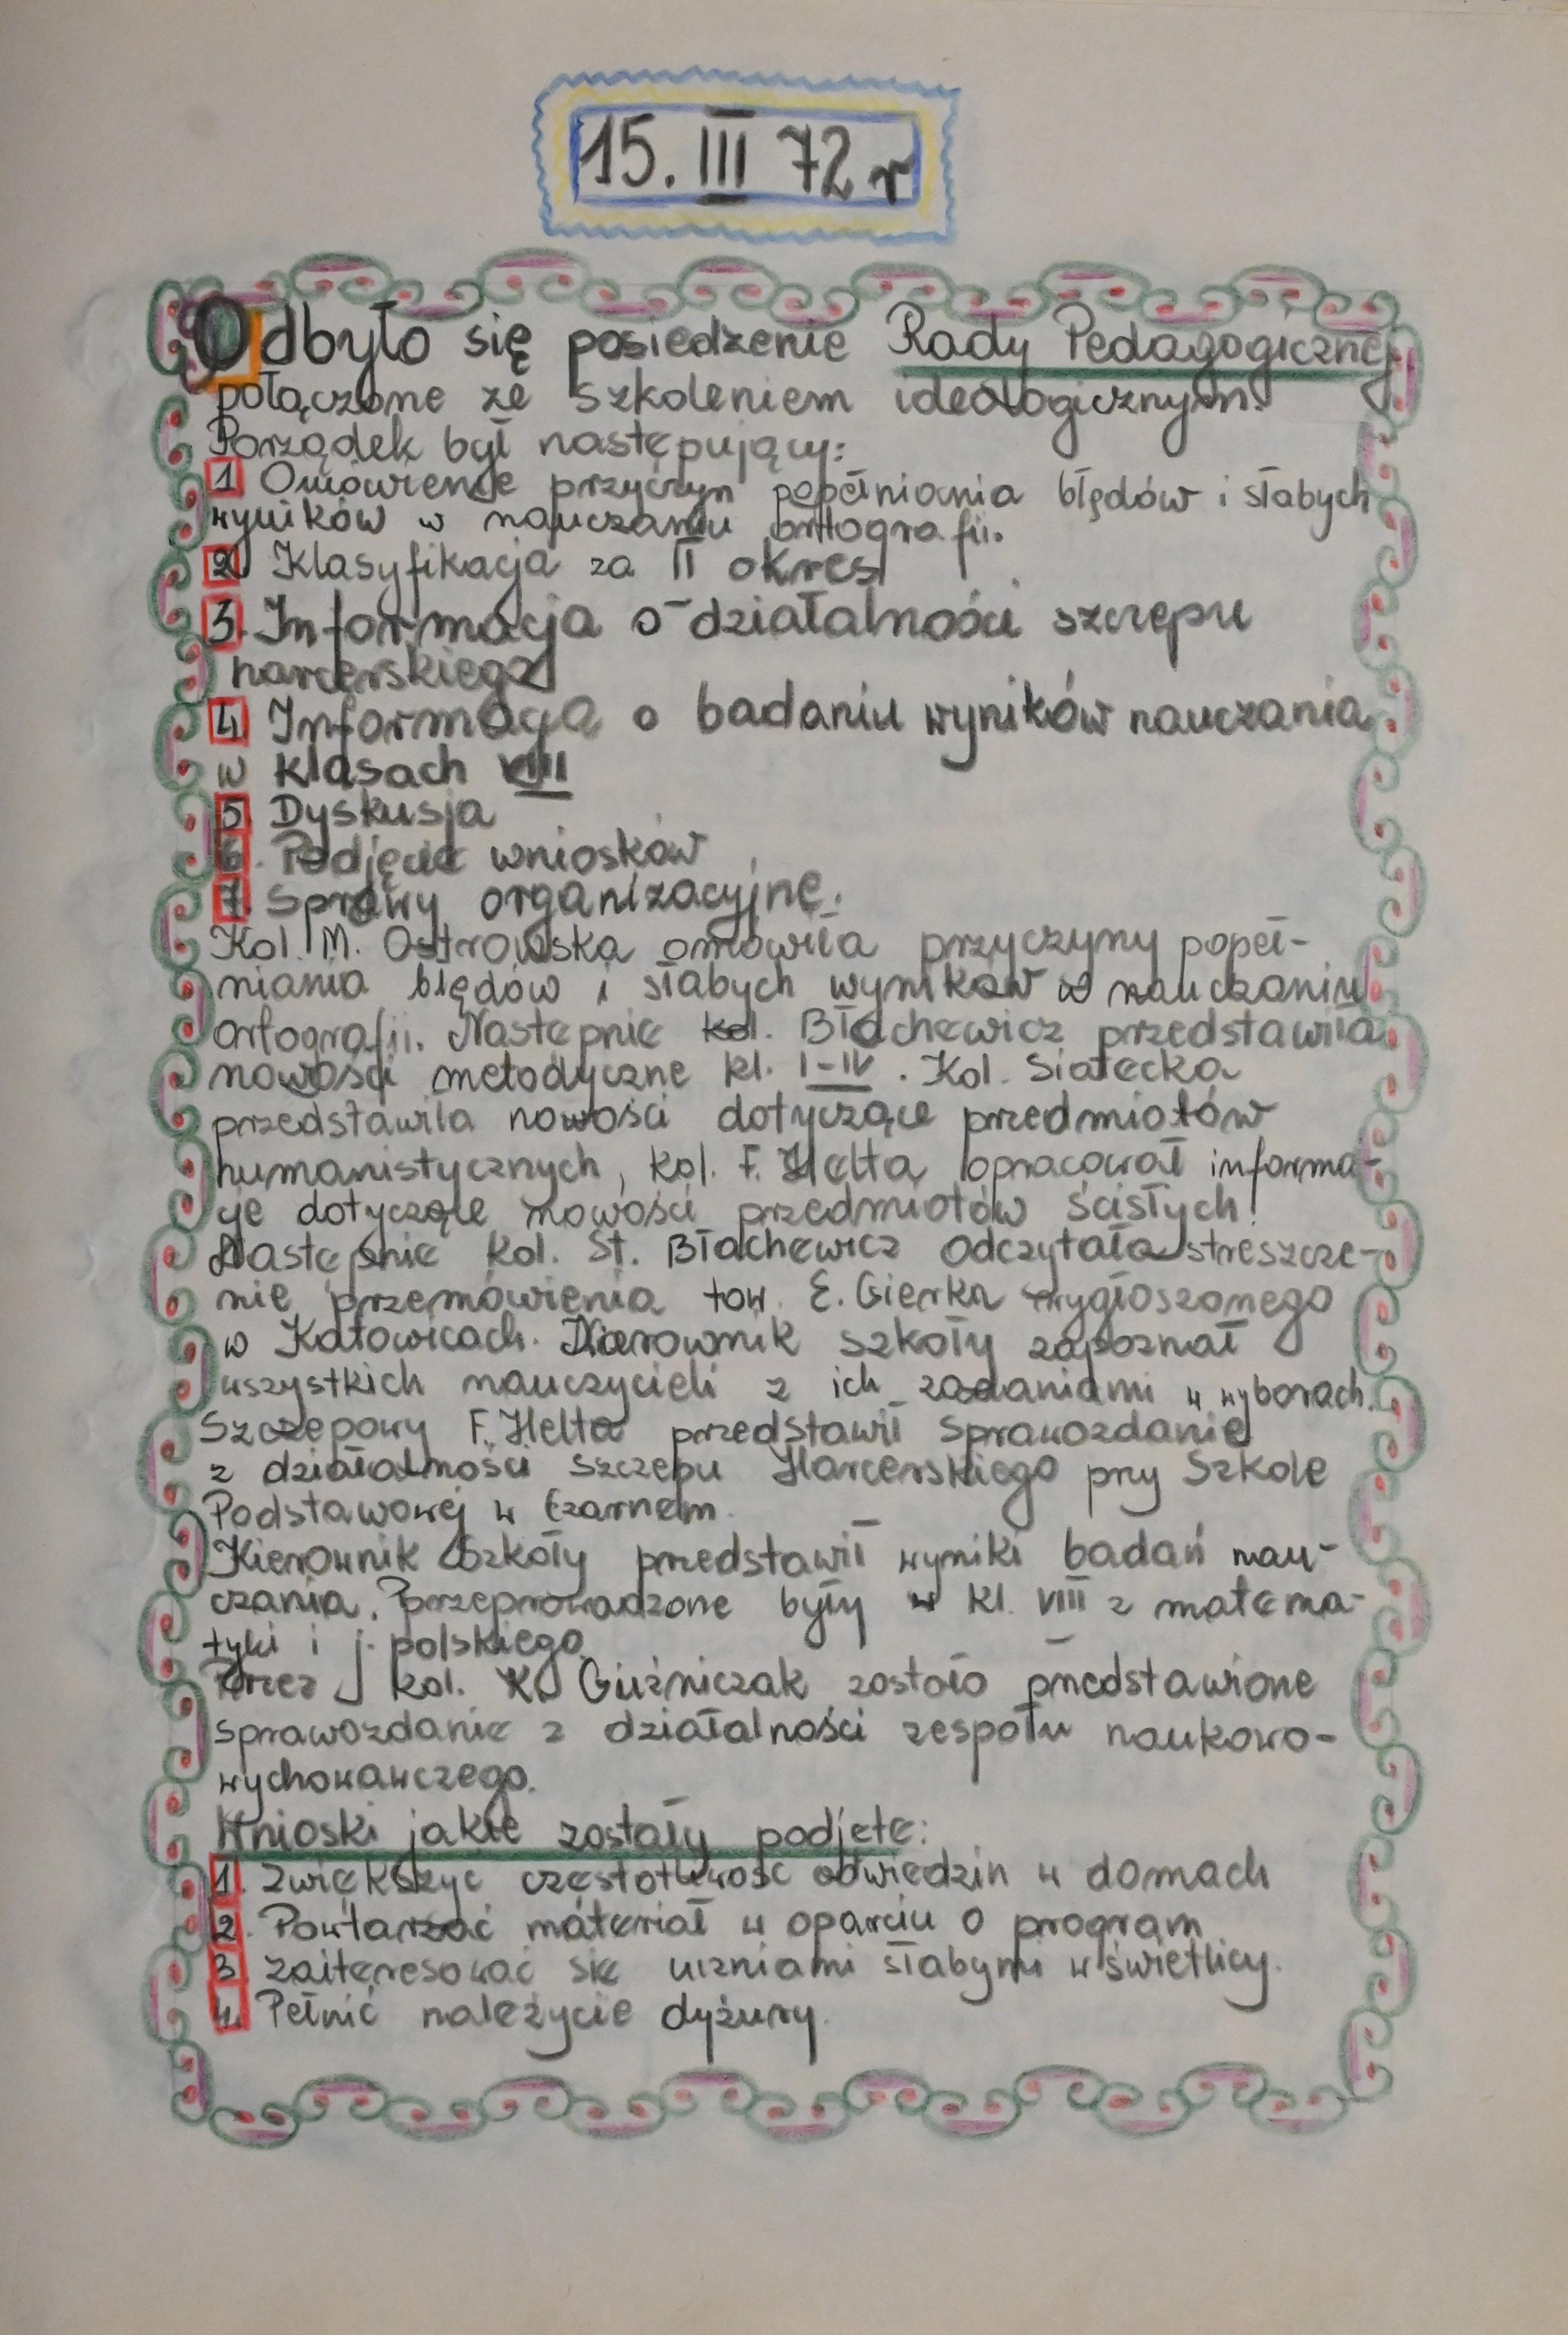 15. III 72 r
Odbyło się posiedzenie Rady Pedagogicznej
połączone ze szkoleniem ideologicznym.
Porządek był następujący:
1 Omówienie przyczyn popełniania błędów i słabych
wyników w nauczaniu ortografii.
2 Klasyfikacja za II okres
3. Informacja o działalności szczepu
harcerskiego
4 Informacja o badaniu wyników nauczania
w klasach VIII
5 Dyskusja
6. Podjęcie wniosków
7. Sprawy organizacyjne.
Kol. M. Ostrowska omówiła przyczyny popeł-
niania błędów i słabych wyników w nauczaniu
ortografii. Następnie kol. Błachewicz przedstawiła
nowości metodyczne kl. I-IV. Kol. Siałecka
przedstawiła nowości dotyczące przedmiotów
humanistycznych, kol. F. Helta opracował informa-
cje dotyczące nowości przedmiotów ścisłych!
Następnie kol. St. Błachewicz odczytała streszcze-
nie przemówienia tow. E. Gierka wygłoszonego
w Katowicach. Kierownik szkoły zapoznał
wszystkich nauczycieli z ich zadaniami w wyborach.
Szczepowy F. Helta przedstawił sprawozdanie
z działalności Szczepu Harcerskiego przy Szkole
Podstawowej w Czarnem.
Kierownik Szkoły przedstawił wyniki badań nau-
czania. Przeprowadzone były w kl. VIII z matema-
tyki i j. polskiego.
Przez kol. K. Guźniczak zostało przedstawione
sprawozdanie z działalności zespołu naukowo-
wychowawczego.
Wnioski jakie zostały podjęte:
1. Zwiększyć częstotliwość odwiedzin w domach
2. Powtarzać materiał w oparciu o program
3 Zaiteresować się uczniami słabymi w świetlicy.
4. Pełnić należycie dyżury.